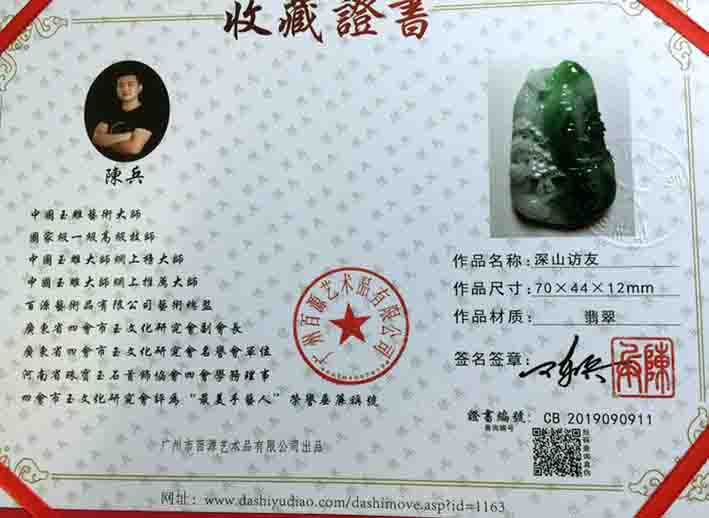 收藏證書
陳兵
中國玉雕藝術大師
國家級一級高級技師
中國玉雕大師網上榜大師
中國玉雕大師網上推薦大師
百源藝術品有限公司藝術總監
廣東省四會市玉文化研究會副會長
廣東省四會市玉文化研究會名譽會單位
河南省珠寶玉石首飾協會四會學務理事
四會市玉文化研究會評為“最美手藝人”榮譽稱號
广州市百源艺术品有限公司出品
广州百源艺术品有限公司
作品名称:深山访友
作品尺寸:70×44×12mm
作品材质:翡翠
签名签章:
陳兵
證書編號:CB 2019090911
查询编号
扫码查询真伪
网址:www.dashiyudiao.com/dashimove.asp?id=1163